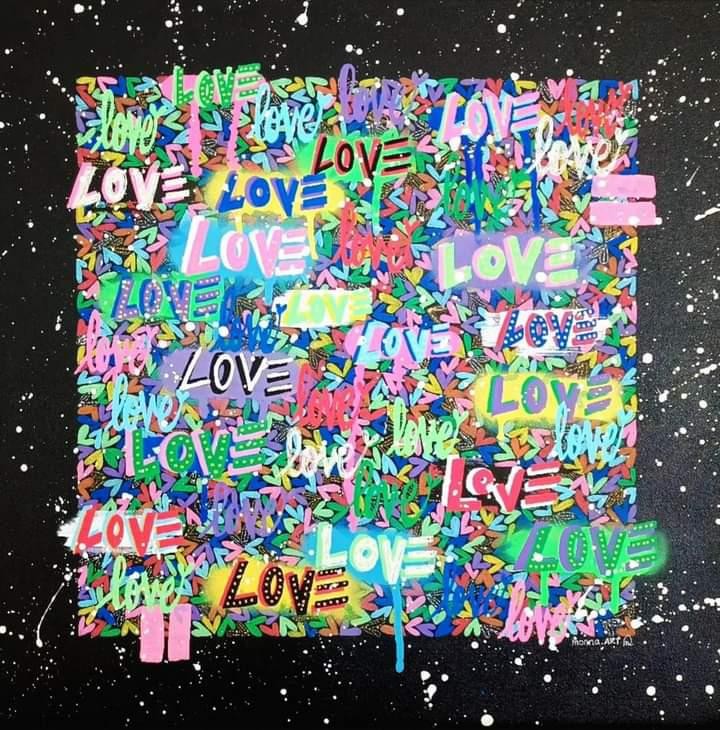 LOVE
love
love
love
LOVE
love
love
LOVE
LOVE
LOVE
love
LOVE
love
LOVE
LOVE
LOVE
love
LOVE
LOVE
love
LOVE
love
LOVE
love
love
love
LOVE
love
love
LOVE
LOVE
love
LOVE
LOVE
love
LOVE
love
love